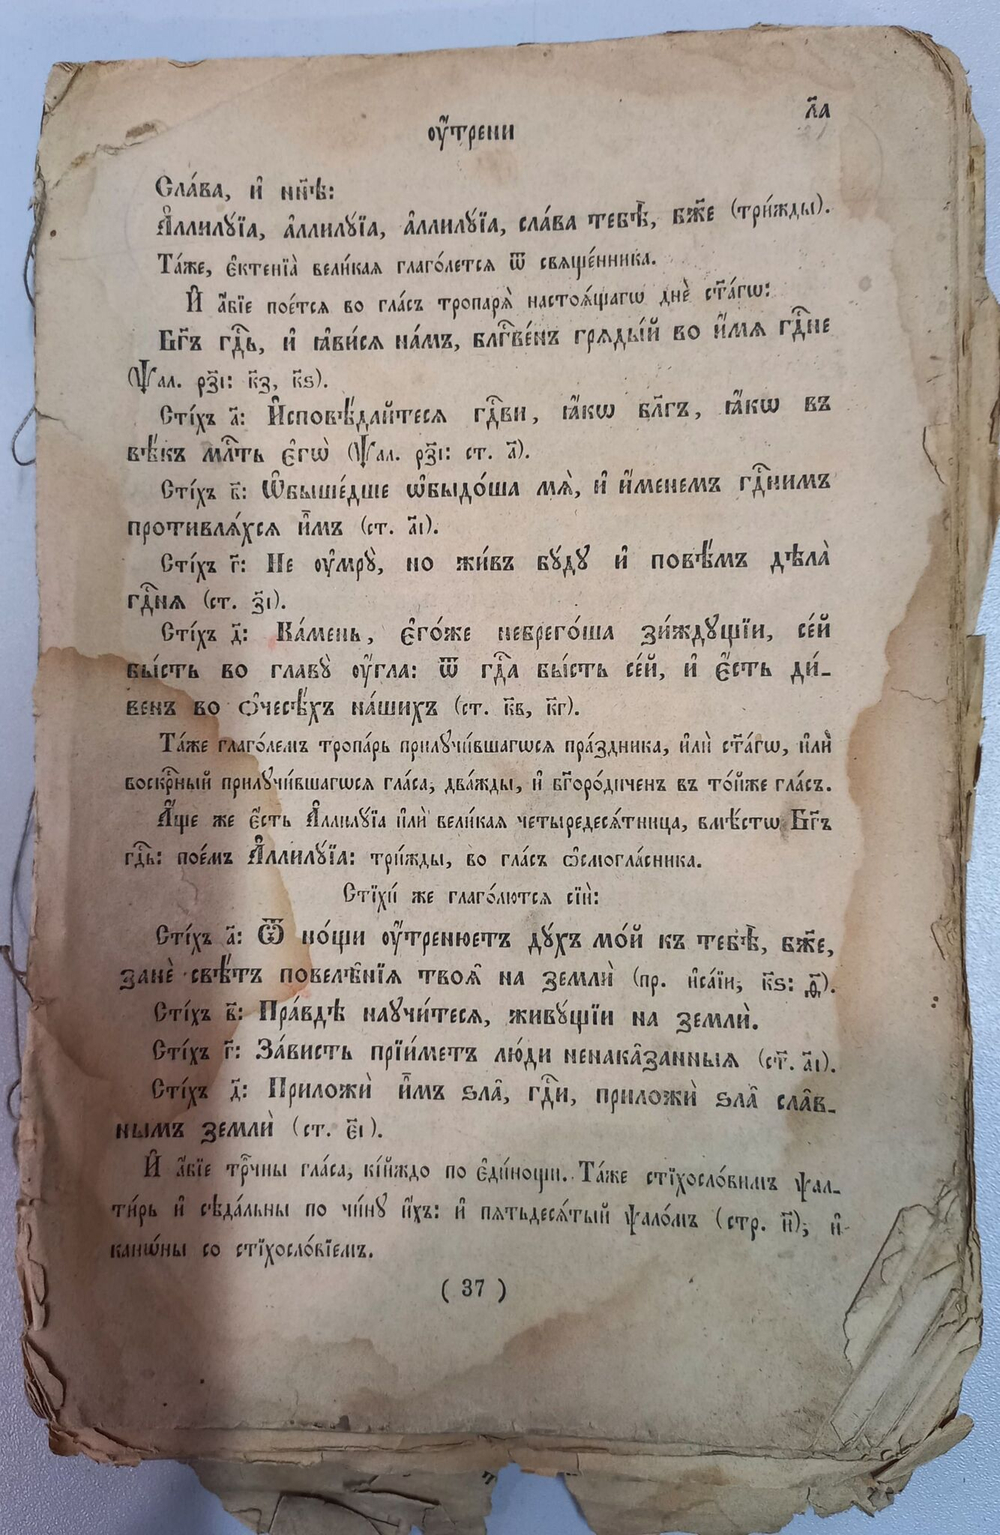 л҃а
оу҆́трени
Сла́ва, и҆ ны́нѣ:
А҆ллилꙋ́їа, а҆ллилꙋ́їа, а҆ллилꙋ́їа, сла́ва тебѣ̀, бж҃е (три́жды).
Та́же, є҆ктенїа̀ вели́кая глаго́лется ѿ свяще́нника.
И҆ а҆́бїе пое́тся во гла́съ тропаря̀ настоя́щагѡ днѐ ст҃а́гѡ:
Бг҃ъ гдⷭ҇ь, и҆ ꙗ҆ви́ся на́мъ, блгⷭ҇ве́нъ гряды́й во и҆́мя гдⷭ҇не
(Ѱал. рз҃і: к҃з, к҃ѕ).
Сті́хъ а҃: И҆сповѣ́дайтеся гдⷭ҇ви, ꙗ҆́кѡ бл҃гъ, ꙗ҆́кѡ въ
вѣ́къ млⷭ҇ть є҆гѡ̀ (Ѱал. рз҃і: ст. а҃).
Сті́хъ в҃: Ѡ҆быше́дше ѡ҆быдо́ша мя̀, и҆ и҆́менемъ гдⷭ҇нимъ
противля́хся и҆̀мъ (ст. а҃і).
Сті́хъ г҃: Не оу҆мрꙋ̀, но жи́въ бꙋ́дꙋ и҆ повѣ́мъ дѣла̀
гдⷭ҇ня (ст. з҃і).
Сті́хъ д҃: Ка́мень, є҆го́же небрего́ша зи́ждꙋщїи, се́й
бы́сть во главꙋ̀ оу҆́гла: ѿ гдⷭ҇а бы́сть се́й, и҆ є҆́сть ди́-
венъ во ѻ҆чесѣ́хъ на́шихъ (ст. к҃в, к҃г).
Та́же глаго́лемъ тропа́рь прилꙋчи́вшагѡся пра́здника, и҆лѝ ст҃а́гѡ, и҆лѝ
воскрⷭ҇ный прилꙋчи́вшагѡся гла́са, два́жды, и҆ бг҃оро́диченъ въ то́йже гла́съ.
А҆́ще же є҆́сть А҆ллилꙋ́їа и҆лѝ вели́кая четыредеся́тница, вмѣ́стѡ Бг҃ъ
гдⷭ҇ь: пое́мъ А҆ллилꙋ́їа: три́жды, во гла́съ ѻ҆смогла́сника.
Стїхи́ же глаго́лются сїѝ:
Сті́хъ а҃: Ѿ но́щи оу҆́тренюетъ дꙋ́хъ мо́й къ тебѣ̀, бж҃е,
занѐ свѣ́тъ повелѣ̑нїя твоя̑ на землѝ (пр. и҆са́їи, к҃ѕ: ѳ҃).
Сті́хъ в҃: Пра́вдѣ наꙋчи́теся, живꙋ́щїи на землѝ.
Сті́хъ г҃: За́висть прїи́метъ лю́ди ненака̑занныя (ст. а҃і).
Сті́хъ д҃: Приложѝ и҆̀мъ ѕла̑, гдⷭ҇и, приложѝ ѕла̑ сла̑в-
нымъ землѝ (ст. є҃і).
И҆ а҆́бїе трⷪ҇чны гла́са, кі́йждо по є҆ди́нощи. Та́же стїхосло́вимъ ѱал-
ти́рь и҆ сѣда́льны по чи́нꙋ и҆́хъ: и҆ пятьдеся́тый ѱало́мъ (стр. н҃), и҆
канѡ́ны со стїхосло́вїемъ.
( 37 )